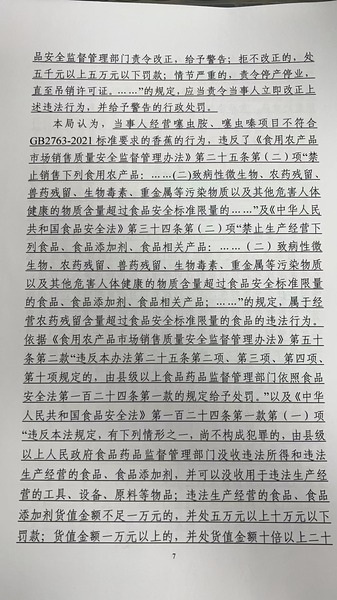 品安全监督管理部门责令改正，给予警告；拒不改正的，处
五千元以上五万元以下罚款；情节严重的，责令停产停业，
直至吊销许可证。……”的规定，应当责令当事人立即改正上
述违法行为，并给予警告的行政处罚。
本局认为，当事人经营噻虫胺、噻虫嗪项目不符合
GB2763-2021标准要求的香蕉的行为，违反了《食用农产品
市场销售质量安全监督管理办法》第二十五条第（二）项“禁
止销售下列食用农产品：……(二)致病性微生物、农药残留、
兽药残留、生物毒素、重金属等污染物质以及其他危害人体
健康的物质含量超过食品安全标准限量的……”及《中华人民
共和国食品安全法》第三十四条第（二）项“禁止生产经营下
列食品、食品添加剂、食品相关产品：……（二）致病性微
生物，农药残留、兽药残留、生物毒素、重金属等污染物质
以及其他危害人体健康的物质含量超过食品安全标准限量
的食品、食品添加剂、食品相关产品；……”的规定，属于经
营农药残留含量超过食品安全标准限量的食品的违法行为。
依据《食用农产品市场销售质量安全监督管理办法》第五十
条第二款“违反本办法第二十五条第二项、第三项、第四项、
第十项规定的，由县级以上食品药品监督管理部门依照食品
安全法第一百二十四条第一款的规定给予处罚。”以及《中华
人民共和国食品安全法》第一百二十四条第一款第（一）项
“违反本法规定，有下列情形之一，尚不构成犯罪的，由县级
以上人民政府食品药品监督管理部门没收违法所得和违法
生产经营的食品、食品添加剂，并可以没收用于违法生产经
营的工具、设备、原料等物品；违法生产经营的食品、食品
添加剂货值金额不足一万元的，并处五万元以上十万元以下
罚款；货值金额一万元以上的，并处货值金额十倍以上二十
7